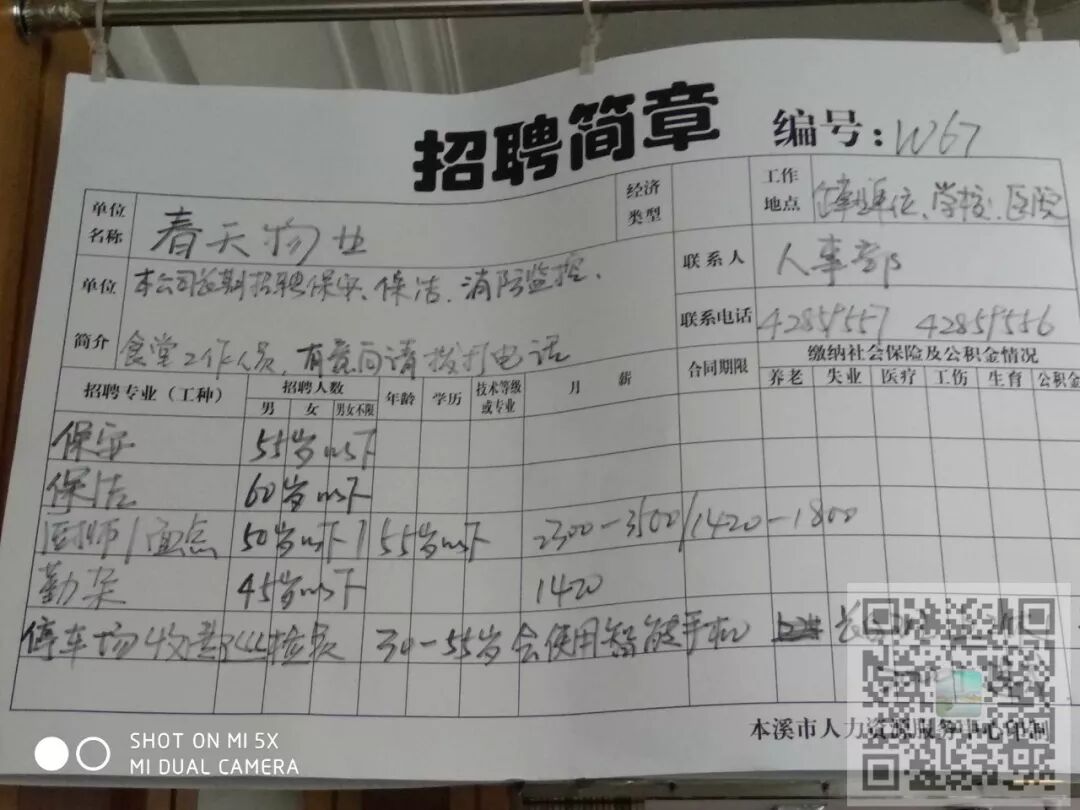 招聘简章
编号：W67
单位名称 春天物业 经济类型 工作地点 企事业单位、学校、医院
单位简介 本公司长期招聘保安、保洁、消防监控、
食堂工作人员，有意向请拨打电话
联系人 人事部
联系电话 42859557 42859556
招聘专业（工种） 招聘人数 年龄 学历 技术等级或专业 月 薪 合同期限 缴纳社会保险及公积金情况
男 女 男女不限 养老 失业 医疗 工伤 生育 公积金
保安 55岁以下
保洁 60岁以下
厨师/面点 50岁以下/55岁以下 2300-3500/1420-1800
勤杂 45岁以下 1420
停车场收费巡检员 30-55岁会使用智能手机
本溪市人力资源服务中心印制
SHOT ON MI 5X
MI DUAL CAMERA